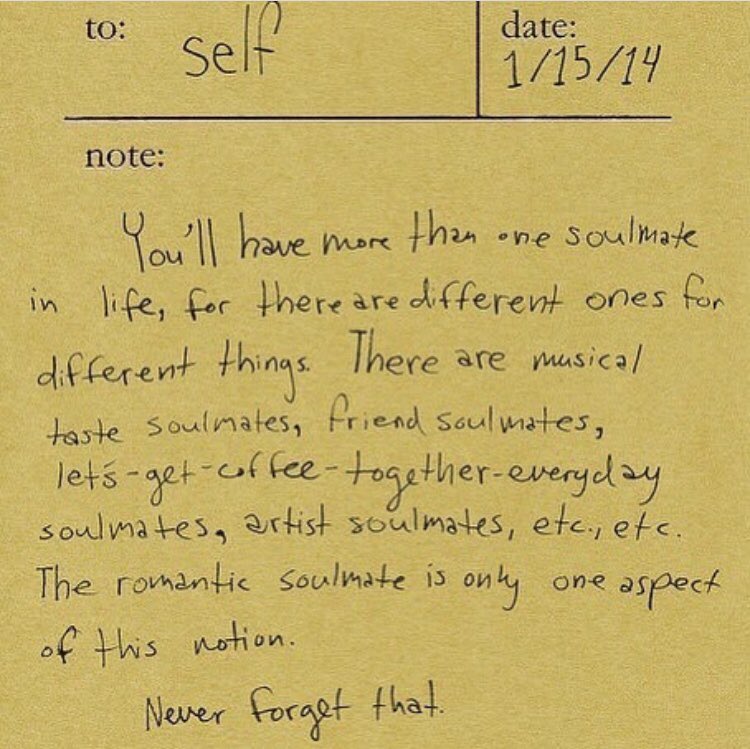 to: self
date: 1/15/14
note:
You'll have more than one soulmate
in life, for there are different ones for
different things. There are musical
taste soulmates, friend soulmates,
let's-get-coffee-together-everyday
soulmates, artist soulmates, etc., etc.
The romantic soulmate is only one aspect
of this notion.
Never forget that.